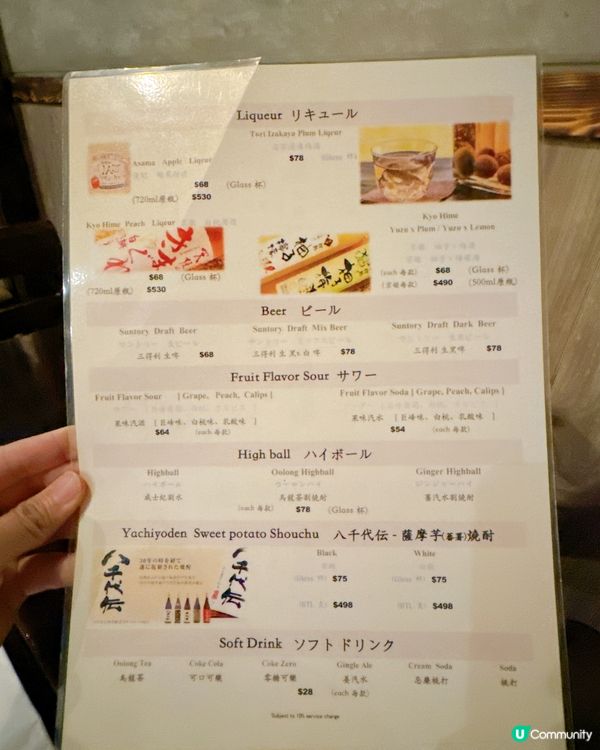 Liqueur リキュール
Tori Izakaya Plum Liqeur
$78
Asama Apple Liqeur
$68 (Glass 杯)
(720ml原瓶) $530
Kyo Hime
Yuzu x Plum / Yuzu x Lemon
(each 每款) $68 (Glass 杯)
$490 (500ml原瓶)
Kyo Hime Peach Liqeur
$68 (Glass 杯)
(720ml原瓶) $530
Beer ビール
Suntory Draft Beer
三得利 生啤 $68
Suntory Draft Mix Beer
三得利 生黑x白 啤 $78
Suntory Draft Dark Beer
三得利 生黑啤 $78
Fruit Flavor Sour サワー
Fruit Flavor Sour [ Grape, Peach, Calips ]
果味汽酒 [ 巨峰味、白桃味、乳酸味 ]
$64 (each 每款)
Fruit Flavor Soda [ Grape, Peach, Calips ]
果味汽水 [ 巨峰味、白桃味、乳酸味 ]
$54 (each 每款)
High ball ハイボール
Highball
ハイボール
威士紀割水
Oolong Highball
烏龍茶割燒酎
Ginger Highball
ジンジャーハイ
薑汽水割燒酎
(each 每款) $78 (Glass 杯)
Yachiyoden Sweet potato Shouchu 八千代伝 - 薩摩芋(番薯)焼酎
Black
(Glass 杯) $75
(BTL 支) $498
White
(Glass 杯) $75
(BTL 支) $498
Soft Drink ソフトドリンク
Oolong Tea
烏龍茶
Coke Cola
可口可樂
Coke Zero
零糖可樂
Gingle Ale
薑汽水
Cream Soda
忌廉梳打
Soda
梳打
$28 (each 每款)
*Subject to 10% service charge
U Community